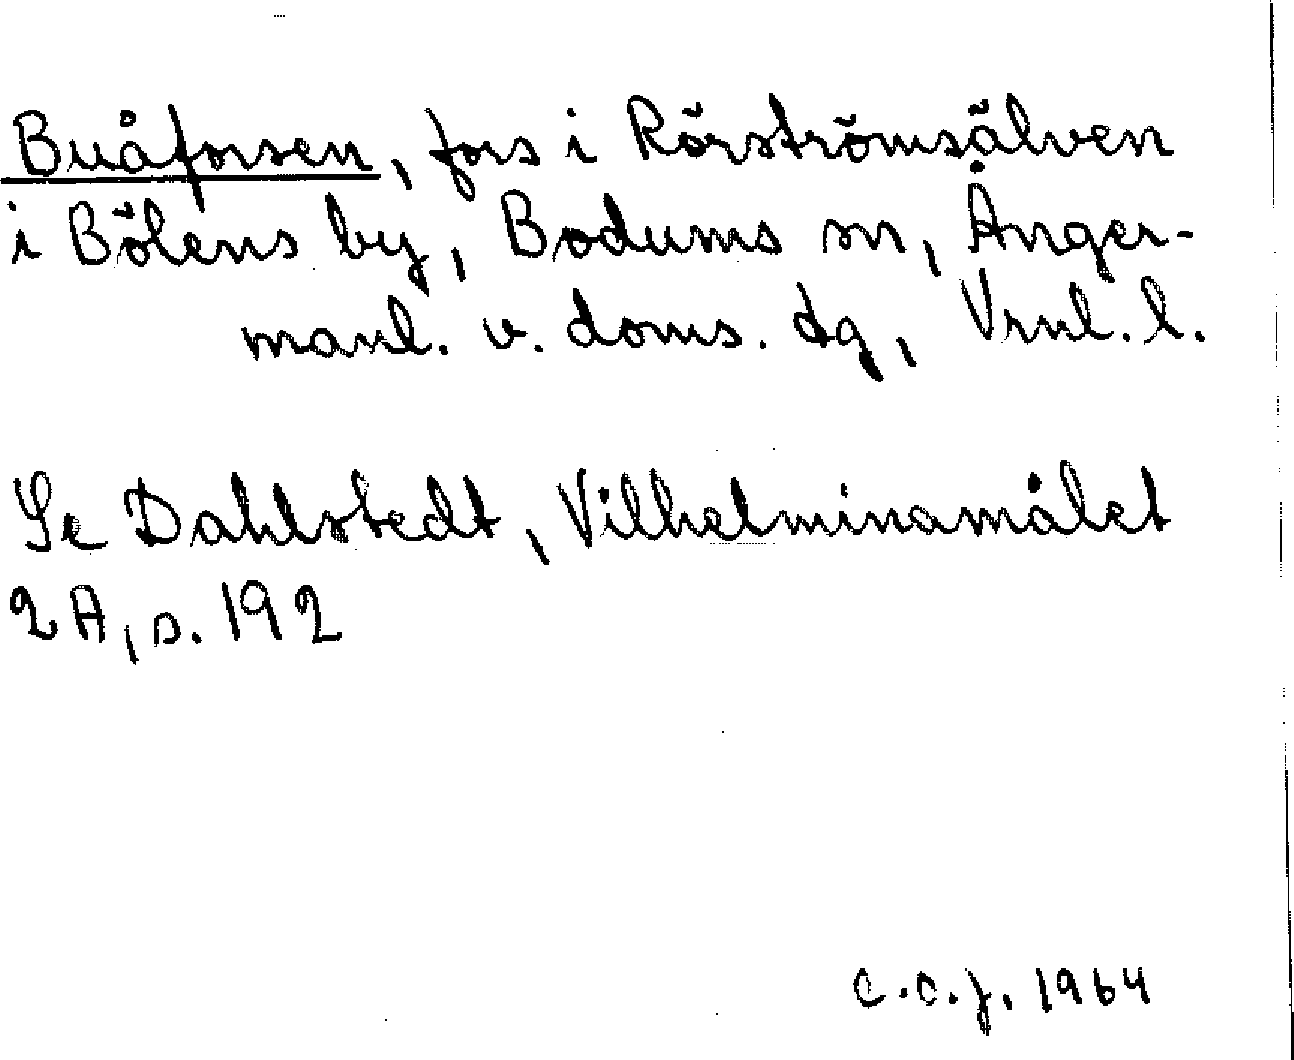 Buåforsen, fors i Rörströmsälven
i Bölens by, Bodums sn, Ånger-
manl. v. doms. dg, Vrnl. l.
Se Dahlstedt, Vilhelminamålet
2A, s. 192
C.C.J. 1964